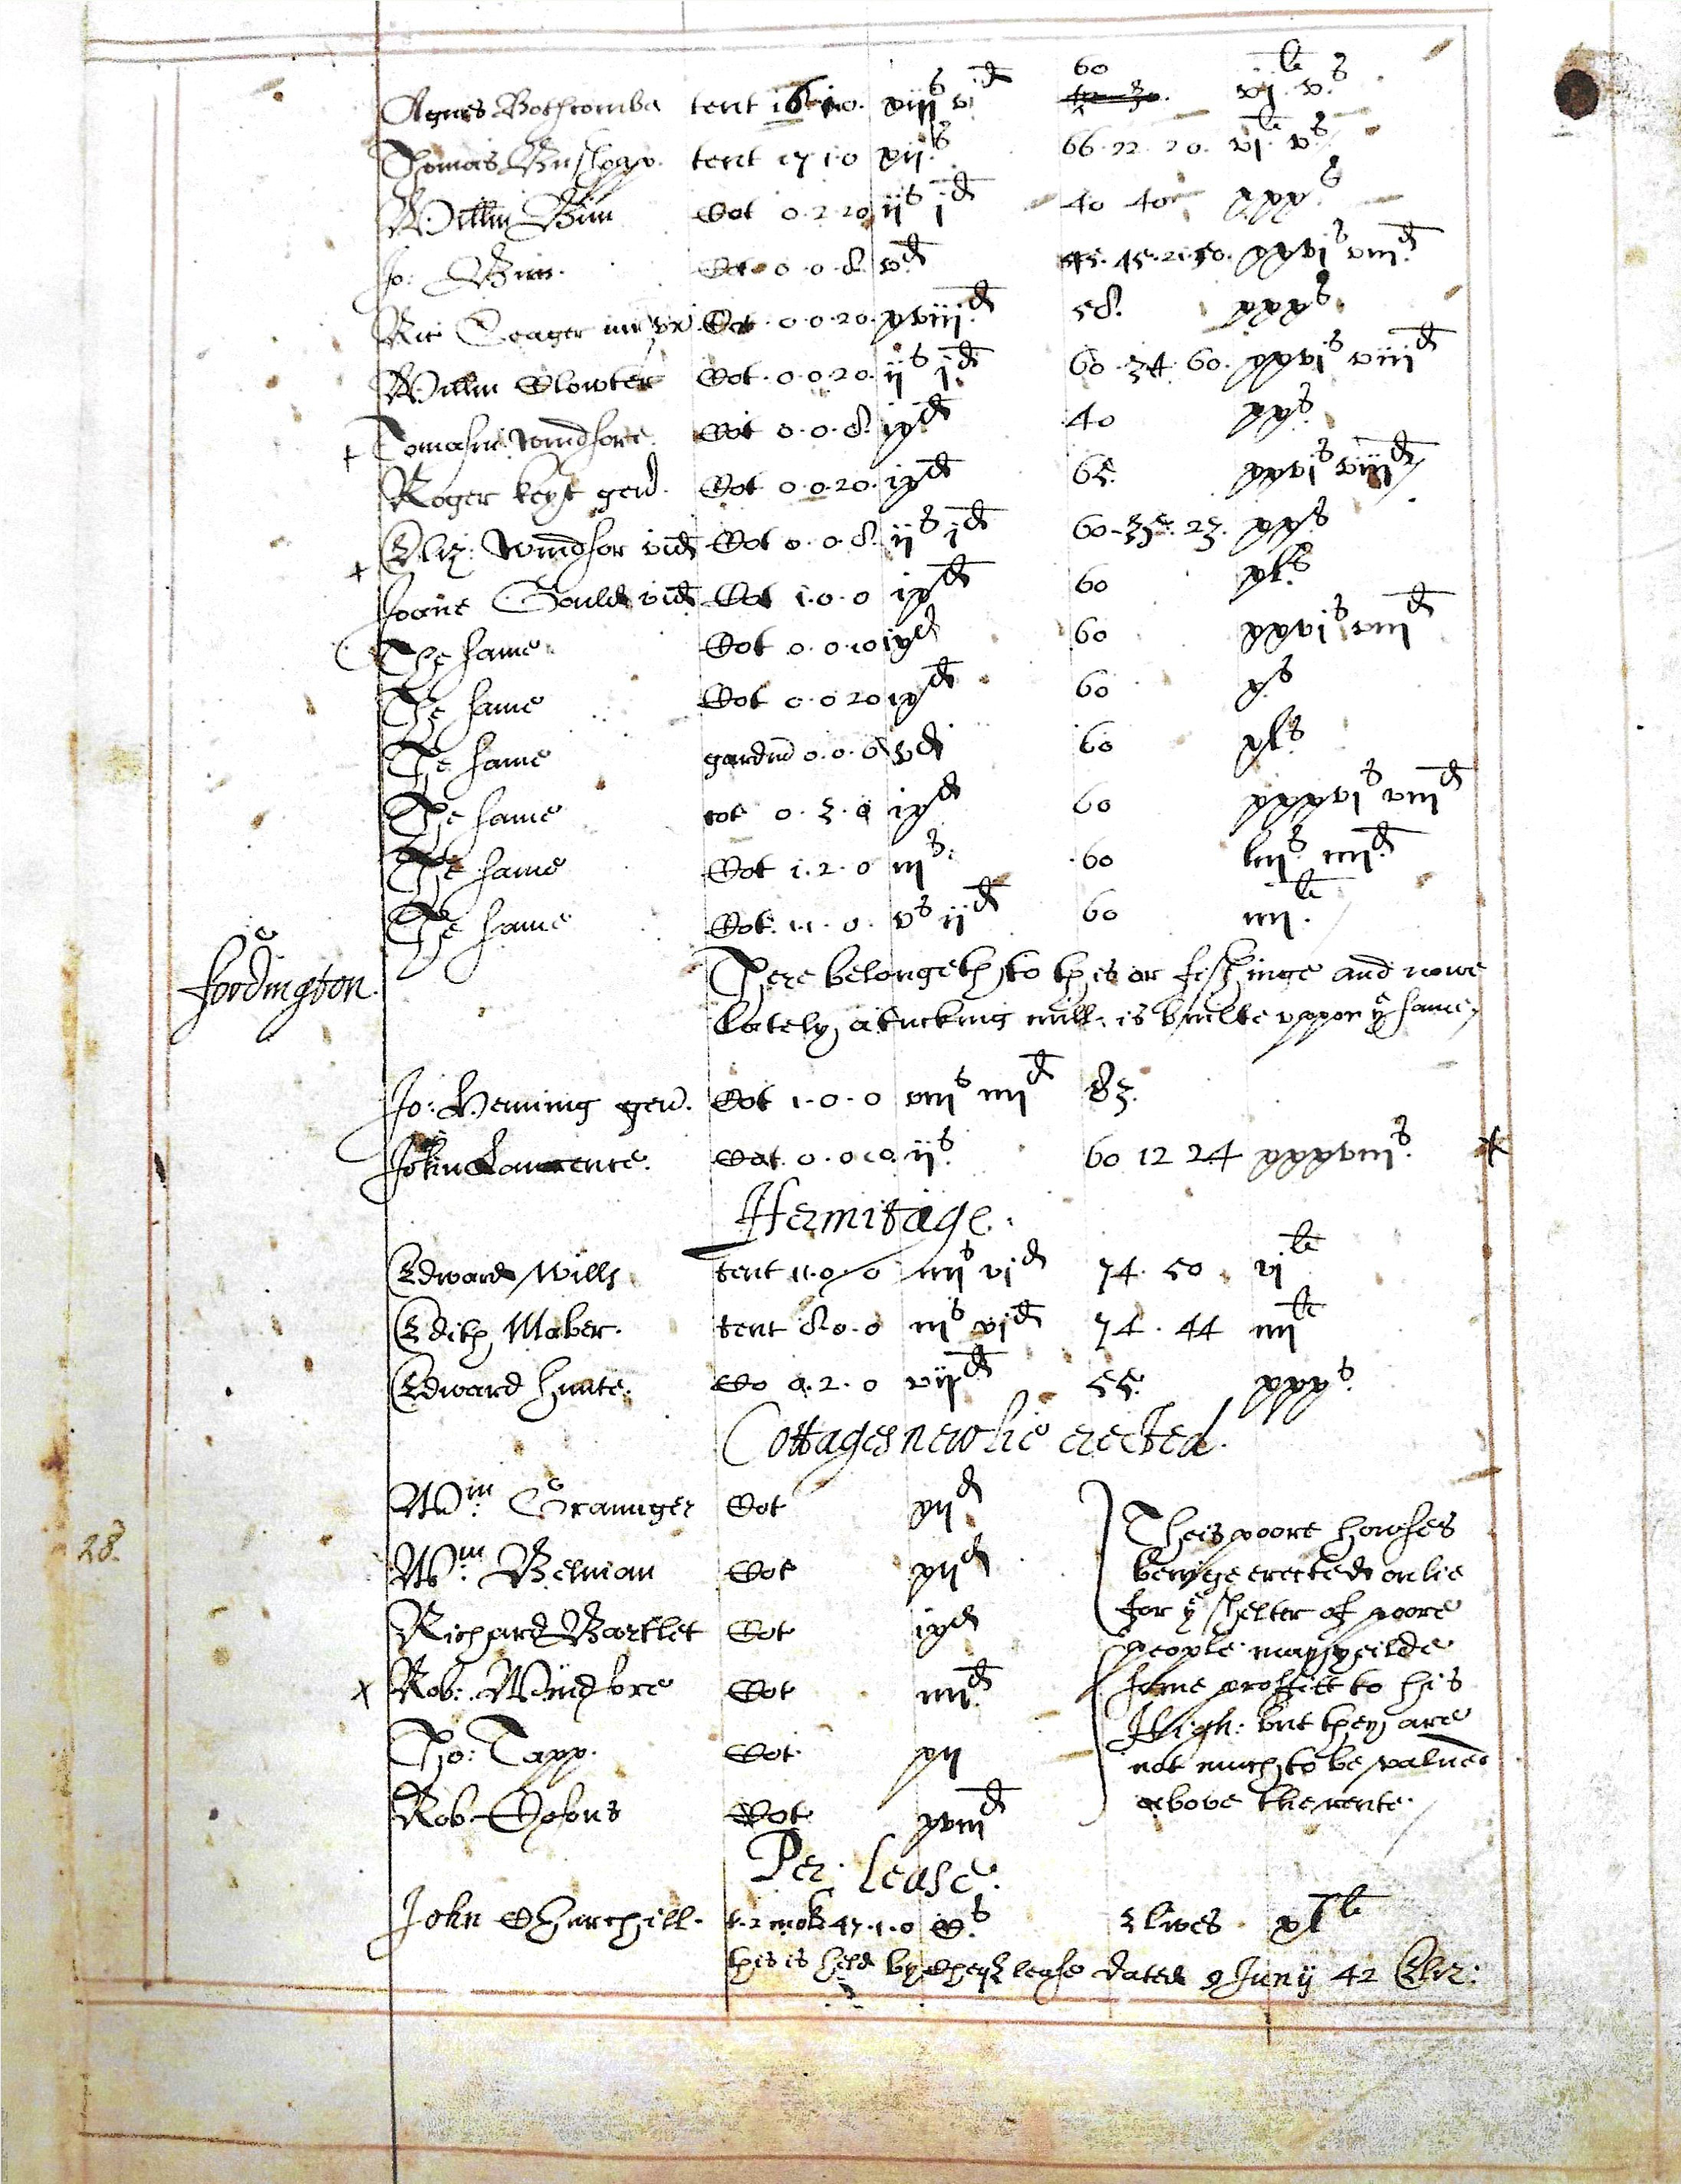 Agnes Boshcomba tent 16 1 0. xiijs vid 60 vjli. vs.
Thomas Bushopp. tent 17 1 0 xijs. 66. 22. 20. vjli. vs
Willm Bun Cot 0. 2. 20 ijs jd 40 40 xxxs
Jo: Bun. Cot 0. 0. 8. vd 45. 45. 21. 50. xxvjs viijd
Ric Seager Cot. 0. 0. 20. xviijd 58. xxxs.
Willm Clowter Cot. 0. 0. 20. ijs jd. 60. 34. 60. xxvjs viijd
+ Tomasin windsore. Cot 0. 0. 8. ixd 40 xxs.
Roger keyt gen. Cot 0. 0. 20. ixd 65. xxvjs viijd
+ Eliz: windsor vid Cot 0. 0. 8. ijs jd 60. 35. 23. xxs
Joane Gould vid Cot 1. 0. 0 ixd 60 xls
The same Cot 0. 0. 10 ixd 60 xxvjs viijd
The same Cot 0. 0 20 ixd 60 xs
The same gardin 0. 0. 6 vd 60 xls.
The same cot 0. 3. 0 ixd 60 xxxvjs viijd
The same Cot 1. 2. 0 iijs. 60 liijs. iiijd.
The same Cot. 11. 0. vs ijd 60 iiijli.
fordington. There belongeth to this ar fishinge and nowe
lately a tucking mill is builte uppon ye same
Jo: Heming gen. Cot 1. 0. 0 viijs iiijd 83.
John Lawrence. Cot. 0. 0. 10. ijs. 60 12 24 xxxviijs. *
Hermitage.
Edward Wills tent 11. 0. 0 iiijs vjd 74. 50. vjli
Edith Maber. tent 8. 0. 0 iijs vjd 74. 44 iiijli
Edward Hunte. Co 0. 2. 0 viijd 55. xxxs.
Cottages newlie erected.
Wm. Graunger Cot xijd
Wm. Belman Cot xijd
Richard Bartlet Cot ixd
x Rob: Windsore Cot iiijd.
Tho: Tapp. Cot. xij
Rob Cot xviijd
Theis poore howses
beinge erected onlie
for ye shelter of poore
people may yeilde
some proffitt to his
High: but they are
not much to be valued
above the rente.
28.
Per Lease.
John Churchill. 47. 1. 0 3 lives. xlli
this is held by lease dated 9 Junij 42 Eliz: